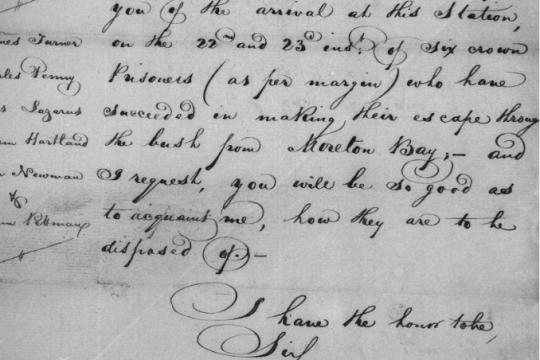 you of the arrival at this Station,
on the 22nd and 23d inst. of six crown
Prisoners (as per margin) who have
succeeded in making their escape throug
the bush from Moreton Bay;– and
I request, you will be so good as
to acquaint me, how they are to be
disposed of.–
I have the honor to be,
Sir
Turner
Penny
Lazarus
Hartland
Newman
&